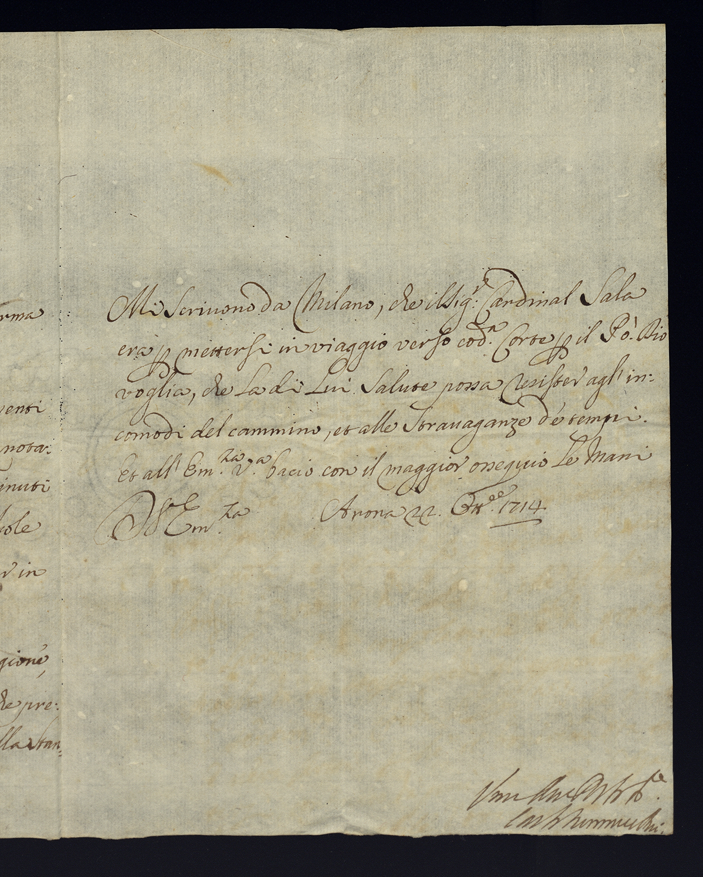 rma
venti
nota:
inuti
role
r in
gione,
che pre:
lla stan:
Mi scrivono da Milano, che il Sig.r Cardinal Sala
era p mettersi in viaggio verso cod.a Corte p il Pò. Dio
voglia, che La di Lui Salute possa resister agl'in:
comodi del cammino, et alle Stravaganze de' tempi.
Et all' Em.za V.a bacio con il maggior ossequio Le Mani
Em.za Arona 22. 1714.